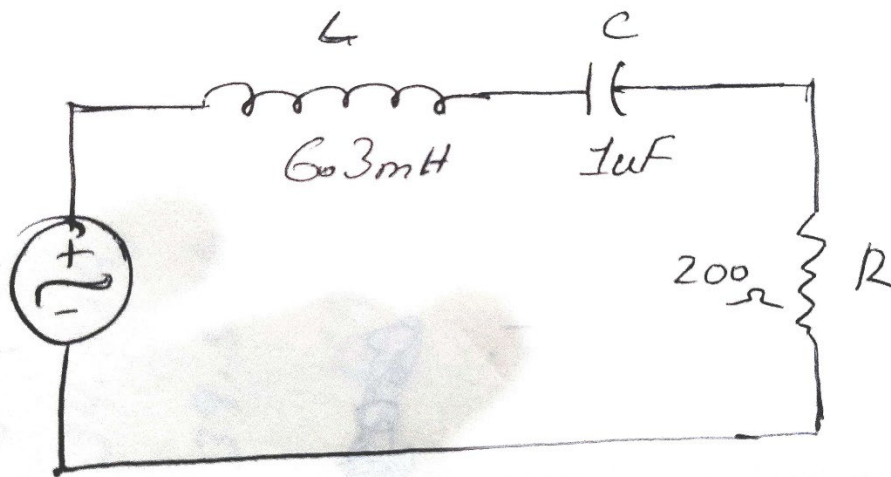 L C
6.3mH 1uF
+
-
200Ω R